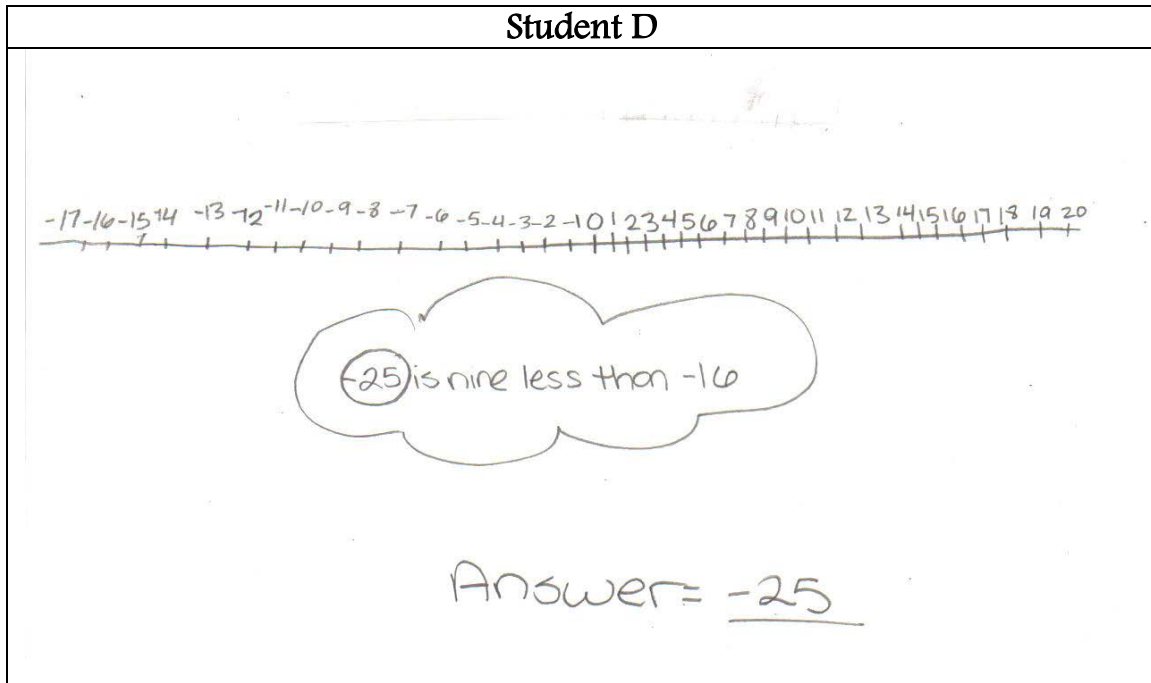 Student D
-17 -16 -15 -14 -13 -12 -11 -10 -9 -8 -7 -6 -5 -4 -3 -2 -1 0 1 2 3 4 5 6 7 8 9 10 11 12 13 14 15 16 17 18 19 20
-25 is nine less than -16
Answer= -25